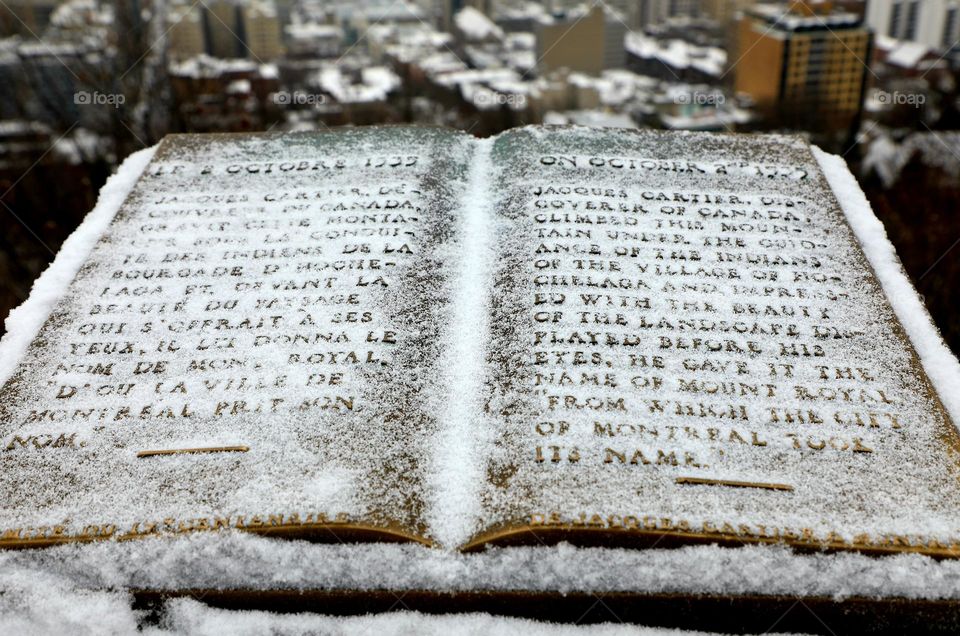 LE 2 OCTOBRE 1535
JACQUES CARTIER, DÉ-
COUVREUR DU CANADA,
GRAVIT CETTE MONTA-
GNE SOUS LA CONDUI-
TE DES INDIENS DE LA
BOURGADE D'HOCHE-
LAGA ET, DEVANT LA
BEAUTÉ DU PAYSAGE
QUI S'OFFRAIT À SES
YEUX, IL LUI DONNA LE
NOM DE MONT ROYAL,
"D'OÙ LA VILLE DE
MONTREAL PRIT SON
NOM."
ON OCTOBER 2ND 1535
JACQUES CARTIER, DIS-
COVERER OF CANADA,
CLIMBED THIS MOUN-
TAIN UNDER THE GUID-
ANCE OF THE INDIANS
OF THE VILLAGE OF HO-
CHELAGA AND IMPRESS-
ED WITH THE BEAUTY
OF THE LANDSCAPE DIS-
PLAYED BEFORE HIS
EYES, HE GAVE IT THE
NAME OF MOUNT ROYAL
"FROM WHICH THE CITY
OF MONTREAL TOOK
ITS NAME."
DU CENTENAIRE
DE JACQUES CARTIER
foap foap foap foap foap